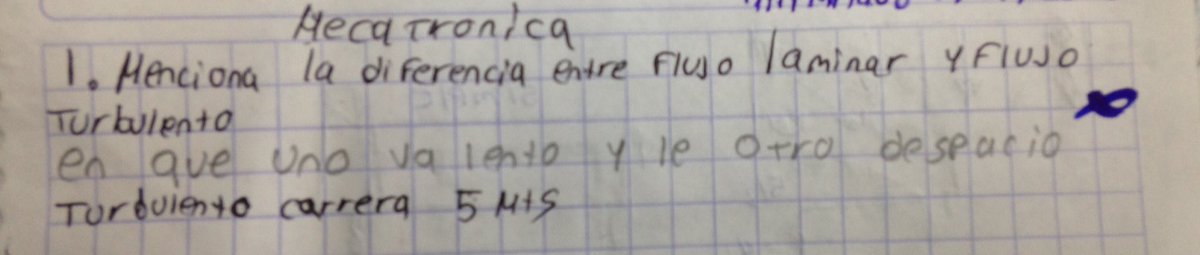 Mecatronica
1. Menciona la diferencia entre Flujo laminar y Flujo
Turbulento
en que uno va lento y le otro despacio
Turbulento carrera 5 Mts